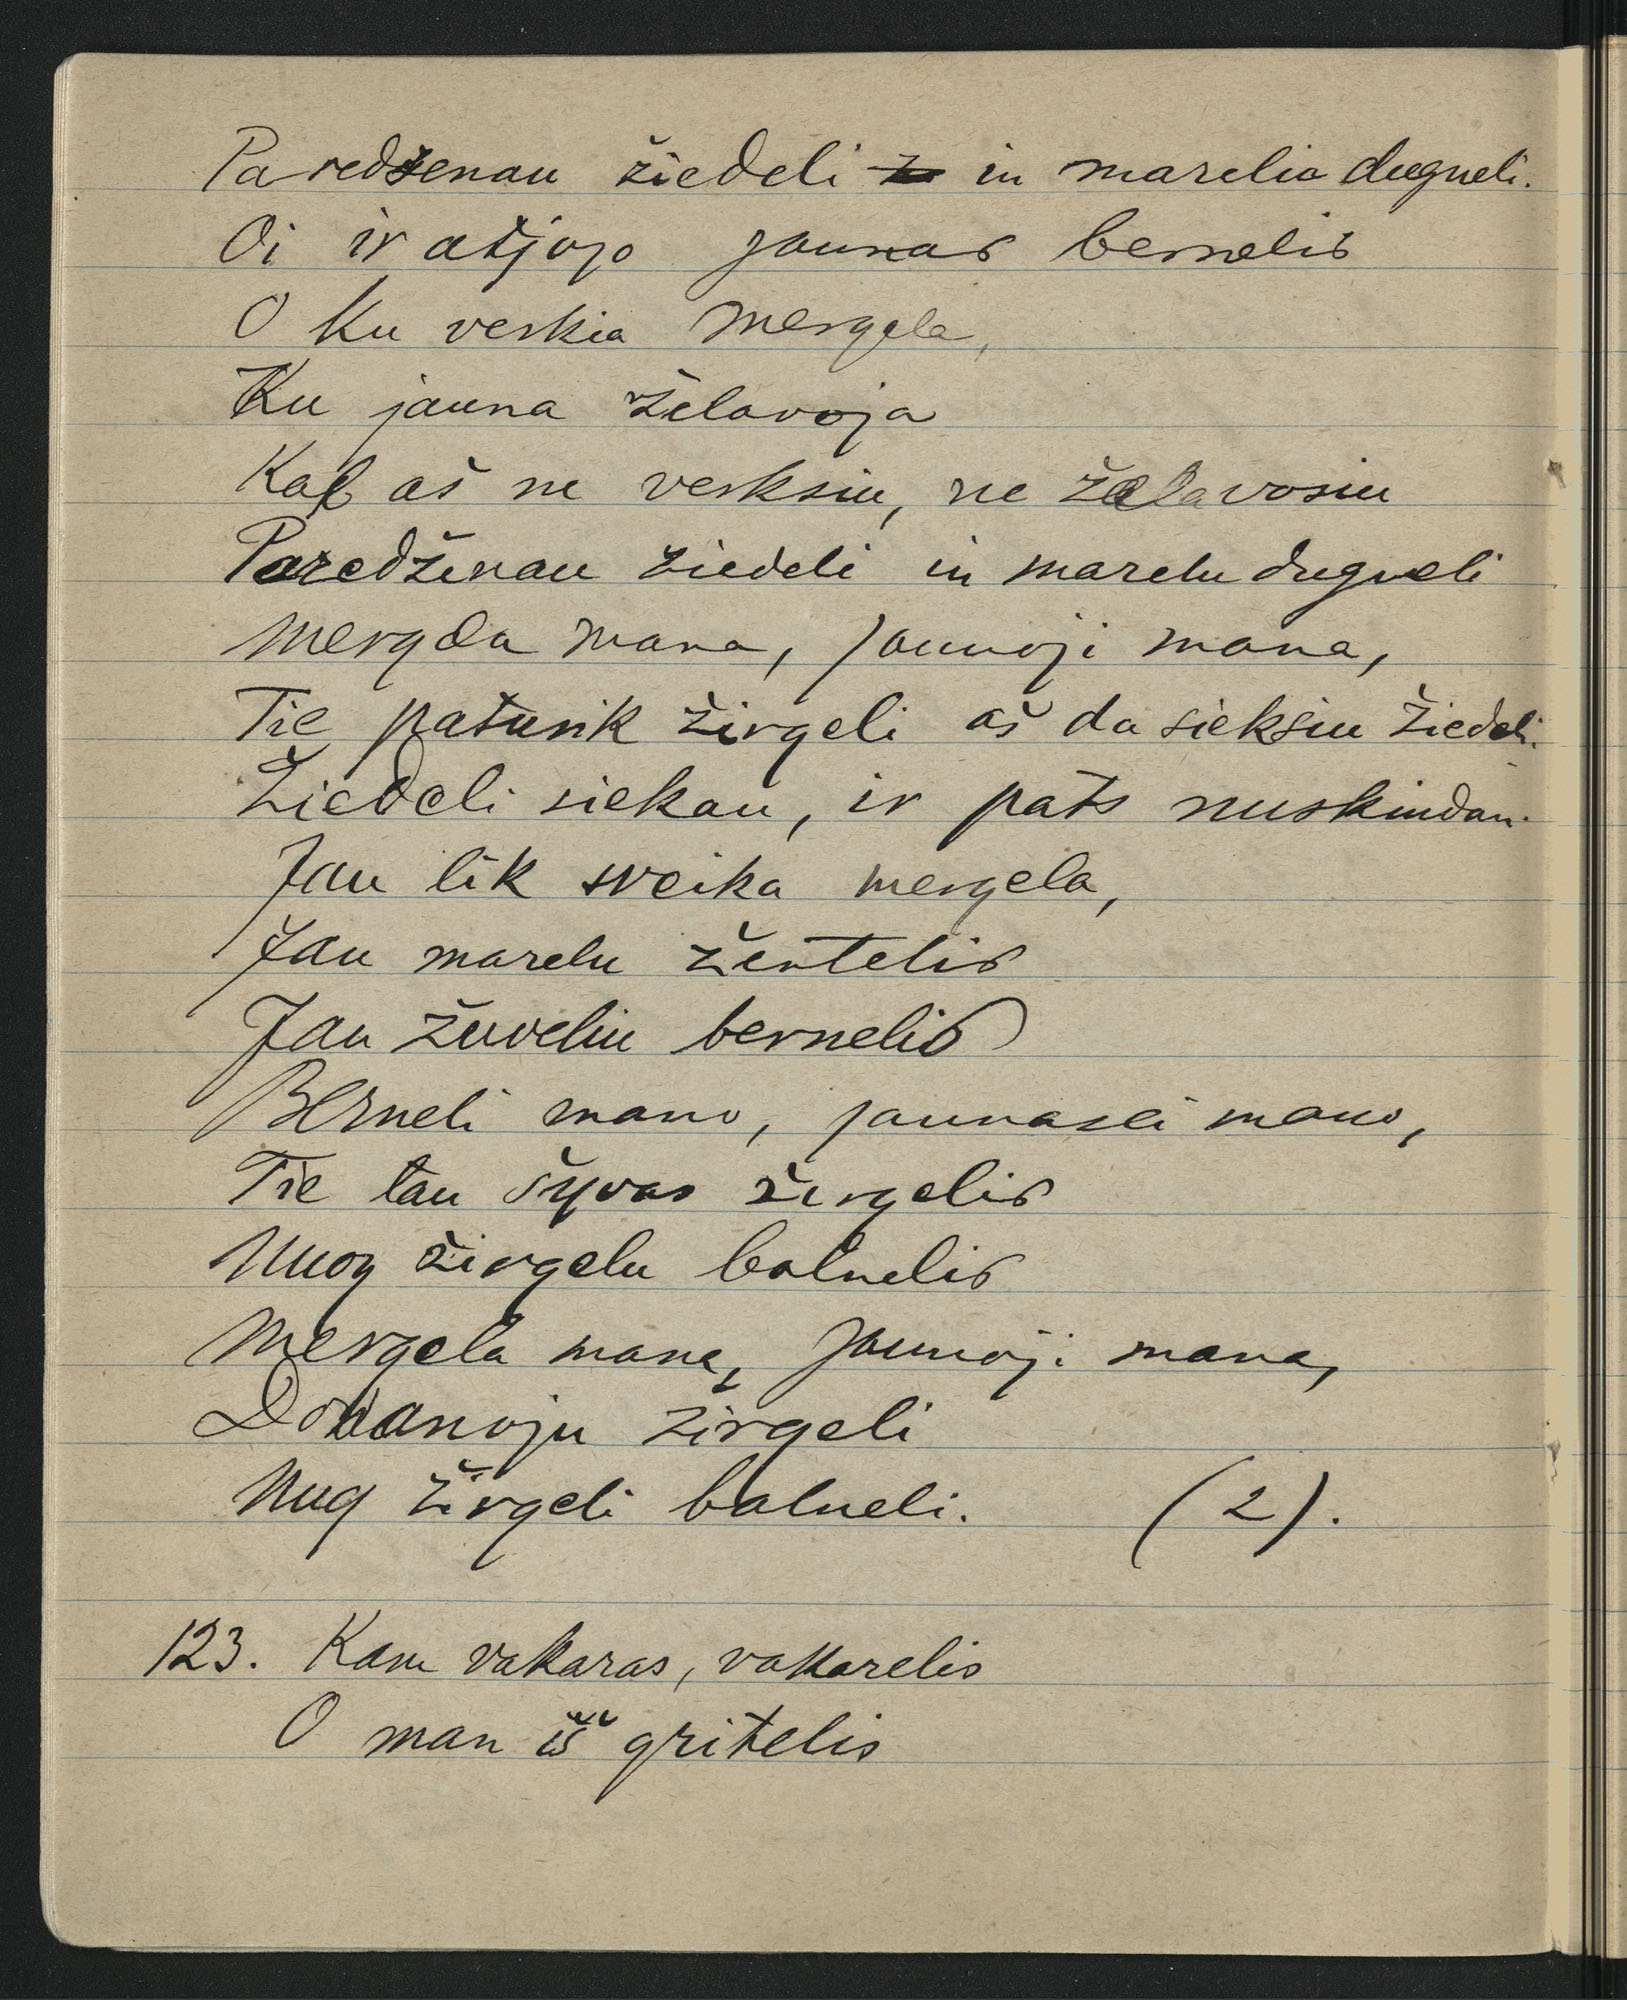 Paredženau žiedeli in marelia dugneli.
Oi ir atjojo jaunas bernelis
O ku verkia mergela,
Ku jauna želavoja
Kal aš ne verksiu, ne želavosiu
Paredženau žiedeli in marelu dugneli
Mergela mana, jaunoji mana,
Tie paturik žirgeli aš da sieksiu žiedeli.
Žiedeli siekau, ir pats nuskindau.
Jau lik sveika mergela,
Jau marelu žentelis
Jau žuveliu bernelis
Berneli mano, jaunasei mano,
Tie tau šyvas žirgelis
Nuog žirgelu balnelis
Mergela mana, jaunoji mana,
Dovanoju žirgeli
Nug žirgeli balneli. (2).
123. Kam vakaras, vakarelis
O man iš gritelis